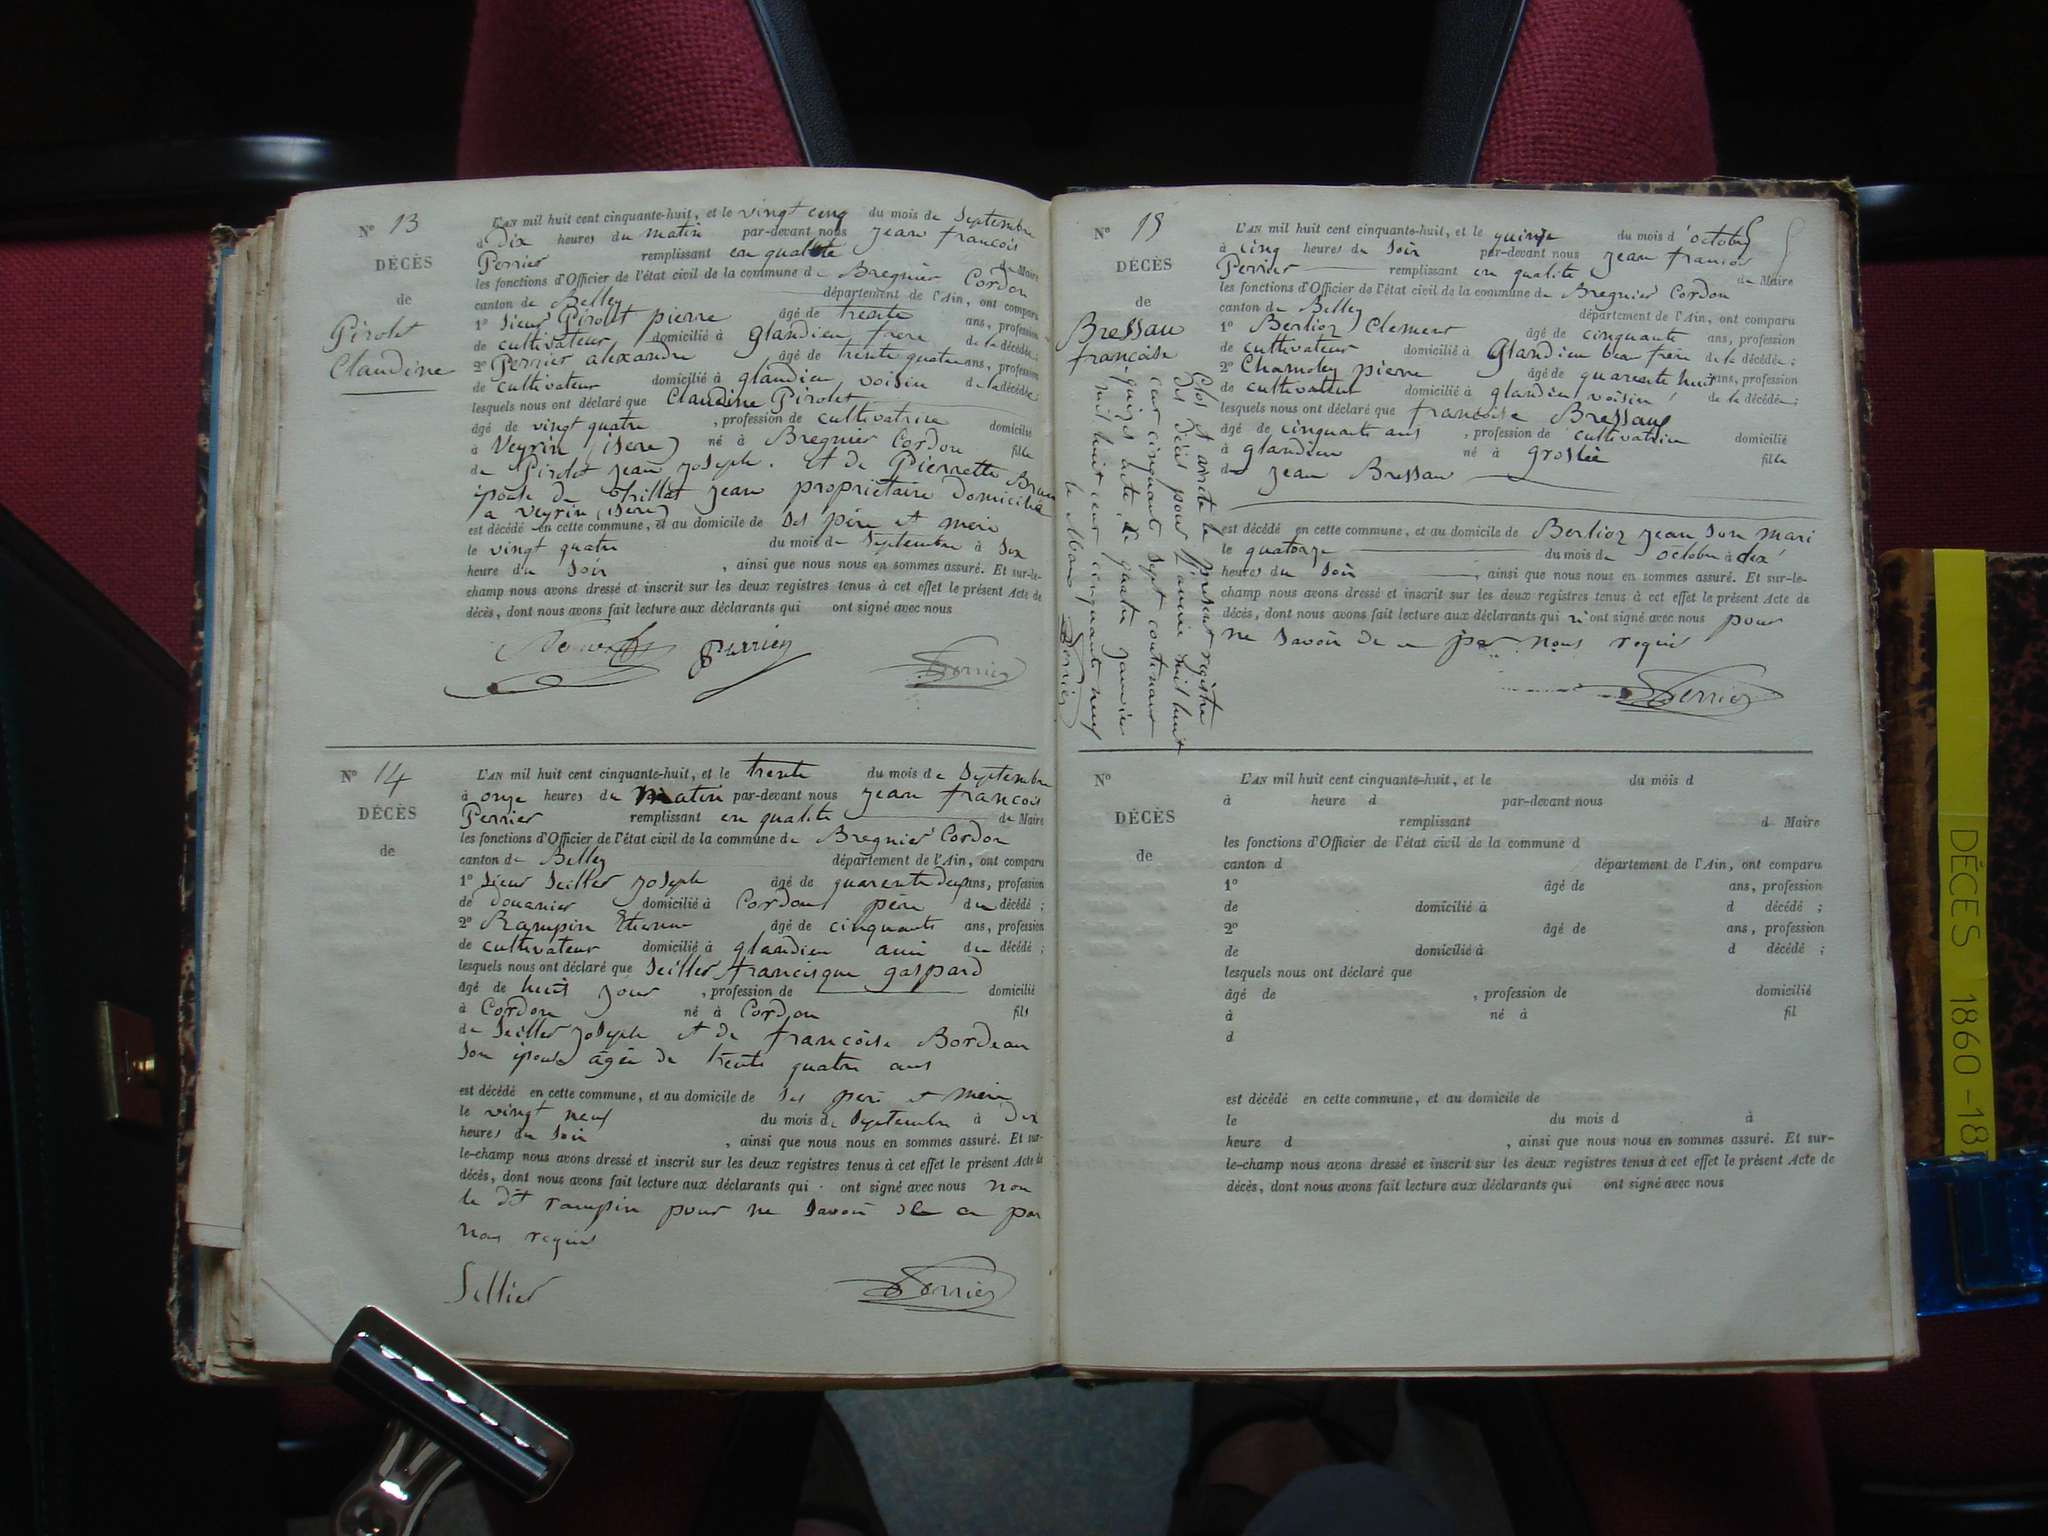 N° 13
DÉCÈS
de
Pirolet
Claudine
L'AN mil huit cent cinquante-huit, et le vingt cinq du mois de Septembre
à Dix heures du matin par-devant nous Jean francois
Perrier remplissant en qualité de Maire
les fonctions d'Officier de l'état civil de la commune de Bregnier Cordon
canton de Belley département de l'Ain, ont comparu
1° Sieur Pirolet pierre âgé de trente ans, profession
de cultivateur domicilié à Glandieu frere de la décédée;
2° Perrier alexandre âgé de trente quatre ans, profession
de cultivateur domicilié à glandieu voisin de la décédée
lesquels nous ont déclaré que Claudine Pirolet
âgé de vingt quatre , profession de cultivatrice domicilié
à Veyrin (isere) né à Bregnier Cordon fille
de Pirolet jean joseph. et de Pierrette Brun
épouse de jean propriétaire domicilié
a veyrin (isere)
est décédé en cette commune, et au domicile de ses père et mere
le vingt quatre du mois de Septembre à dix
heure du Soir , ainsi que nous nous en sommes assuré. Et sur-le-
champ nous avons dressé et inscrit sur les deux registres tenus à cet effet le présent Acte de
décès, dont nous avons fait lecture aux déclarants qui ont signé avec nous
Perrier Perrier
N° 14
DÉCÈS
de
L'AN mil huit cent cinquante-huit, et le trente du mois de Septembre
à onze heures du matin par-devant nous Jean francois
Perrier remplissant en qualité de Maire
les fonctions d'Officier de l'état civil de la commune de Bregnier Cordon
canton de Belley département de l'Ain, ont comparu
1° Sieur Seiller joseph âgé de quarente deux ans, profession
de douanier domicilié à Cordon père du décédé ;
2° Rampin Etienne âgé de cinquante ans, profession
de cultivateur domicilié à glandieu ami du décédé ;
lesquels nous ont déclaré que Seiller francisque gaspard
âgé de huit jour , profession de domicilié
à Cordon né à Cordon fils
de Seiller joseph et de francoise Bordeau
son épouse âgée de trente quatre ans
est décédé en cette commune, et au domicile de ses pere et mere
le vingt neuf du mois de Septembre à dix
heures du Soir , ainsi que nous nous en sommes assuré. Et sur-
le-champ nous avons dressé et inscrit sur les deux registres tenus à cet effet le présent Acte de
décès, dont nous avons fait lecture aux déclarants qui ont signé avec nous non
le dit rampin pour ne savoir de ce par
nous requis
Sellier Perrier
N° 15
DÉCÈS
de
Bressau
francoise
L'AN mil huit cent cinquante-huit, et le quinze du mois d'octobre
à cinq heures du Soir par-devant nous Jean francois
Perrier remplissant en qualité de Maire
les fonctions d'Officier de l'état civil de la commune de Bregnier Cordon
canton de Belley département de l'Ain, ont comparu
1° Berlioz Clement âgé de cinquante ans, profession
de cultivateur domicilié à Glandieu beau frere de la décédée;
2° Chamoley pierre âgé de quarente huit ans, profession
de cultivateur domicilié à glandieu voisin de la décédée;
lesquels nous ont déclaré que francoise Bressau
âgé de cinquante ans , profession de cultivatrice domicilié
à glandieu né à Groslée fille
de jean Bressau
est décédé en cette commune, et au domicile de Berlioz jean son mari
le quatorze du mois de octobre à dix
heures du Soir , ainsi que nous nous en sommes assuré. Et sur-le-
champ nous avons dressé et inscrit sur les deux registres tenus à cet effet le présent Acte de
décès, dont nous avons fait lecture aux déclarants qui n'ont signé avec nous pour
ne Savoir de ce par nous requis
Perrier
Clos et arrêté le présent registre
des décès pour l'année mil huit
cent cinquante sept contenant
quinze acte, le quatre janvier
mil huit cent cinquante neuf
le Maire Perrier
N°
DÉCÈS
de
L'AN mil huit cent cinquante-huit, et le du mois d
à heure d par-devant nous
remplissant d Maire
les fonctions d'Officier de l'état civil de la commune d
canton d département de l'Ain, ont comparu
1° âgé de ans, profession
de domicilié à d décédé ;
2° âgé de ans, profession
de domicilié à d décédé ;
lesquels nous ont déclaré que
âgé de , profession de domicilié
à né à fil
d
est décédé en cette commune, et au domicile de
le du mois d à
heure d , ainsi que nous nous en sommes assuré. Et sur-
le-champ nous avons dressé et inscrit sur les deux registres tenus à cet effet le présent Acte de
décès, dont nous avons fait lecture aux déclarants qui ont signé avec nous
DÉCES 1860-18